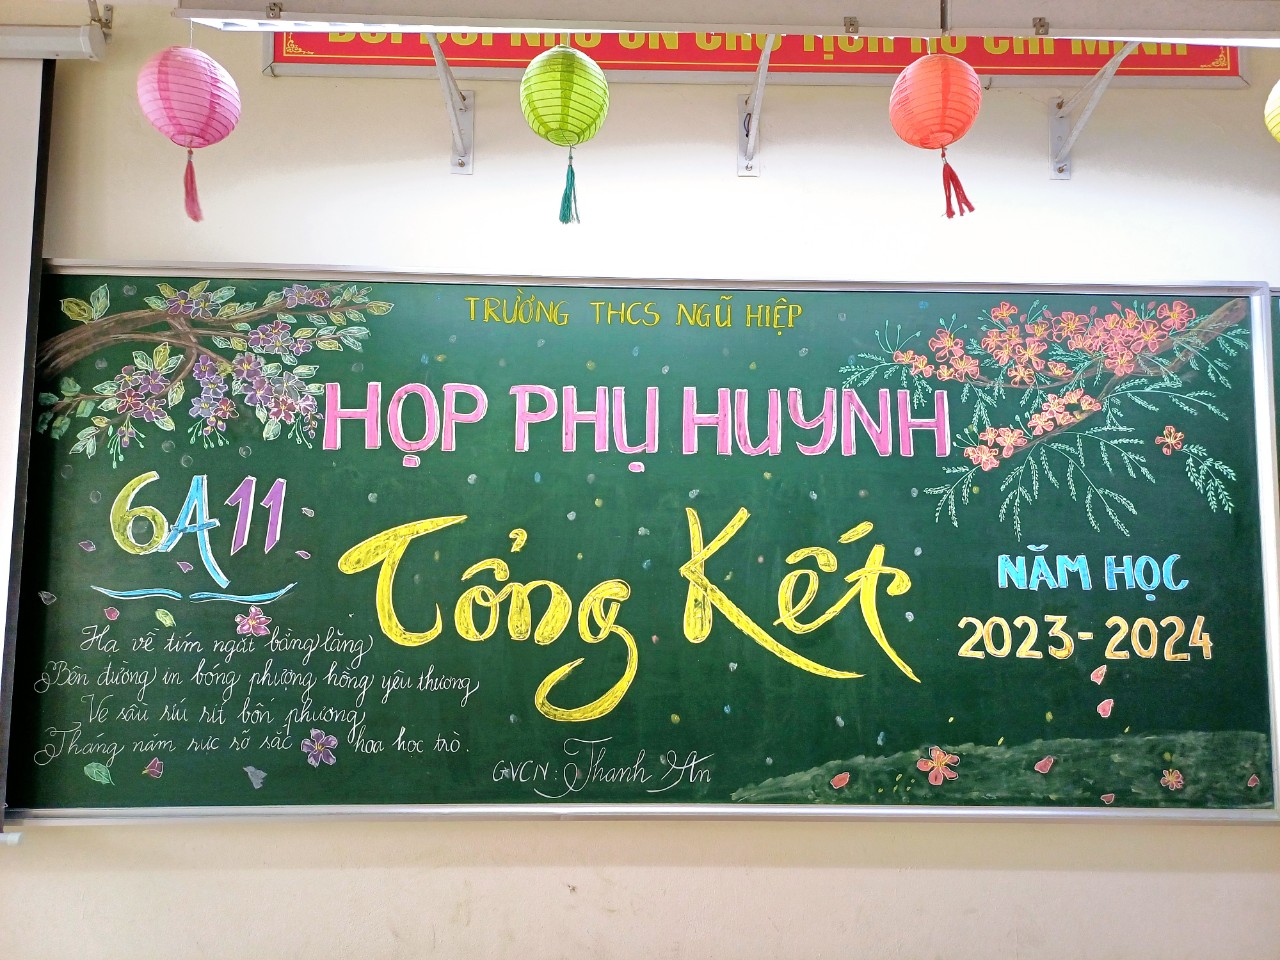 TRƯỜNG THCS NGŨ HIỆP
HỌP PHỤ HUYNH
6A11
Tổng Kết
NĂM HỌC
2023-2024
Hạ về tím ngát bằng lăng
Bên đường in bóng phượng hồng yêu thương
Ve sầu ríu rít bốn phương
Tháng năm rực rỡ sắc hoa học trò.
GVCN: Thanh An